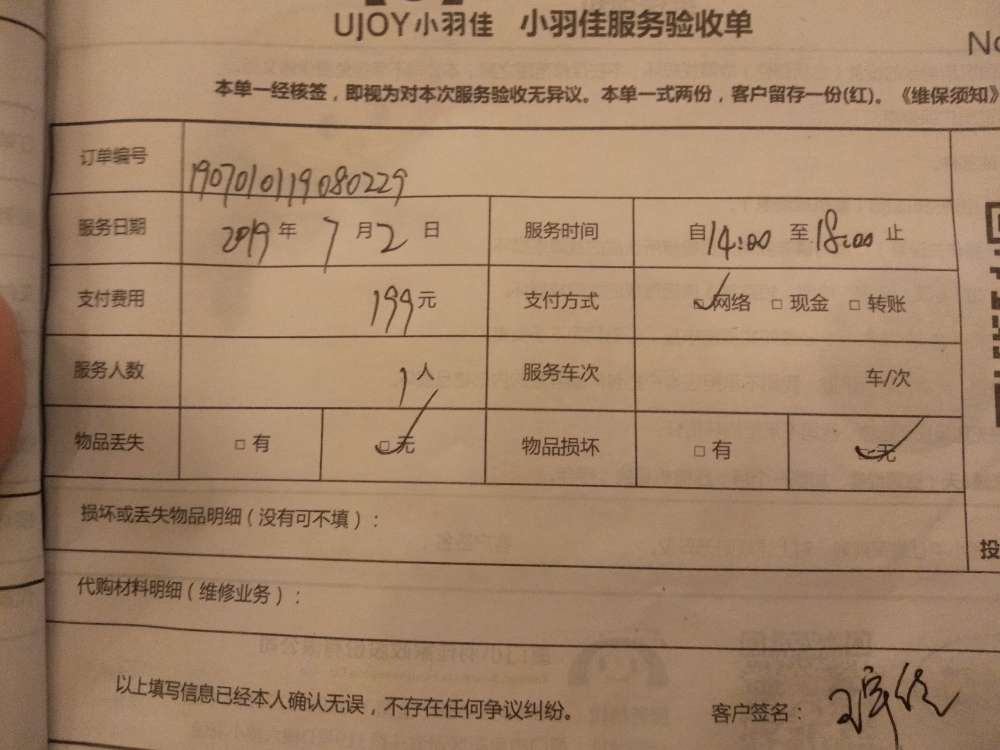 UJOY小羽佳 小羽佳服务验收单
No
本单一经核签，即视为对本次服务验收无异议。本单一式两份，客户留存一份(红)。《维保须知》
订单编号 1907010119080229
服务日期 2019 年 7 月 2 日 服务时间 自 14:00 至 18:00 止
支付费用 199 元 支付方式 ☑ 网络 □ 现金 □ 转账
服务人数 1 人 服务车次 车/次
物品丢失 □ 有 ☑ 无 物品损坏 □ 有 ☑ 无
损坏或丢失物品明细（没有可不填）：
投
代购材料明细（维修业务）：
以上填写信息已经本人确认无误，不存在任何争议纠纷。 客户签名：